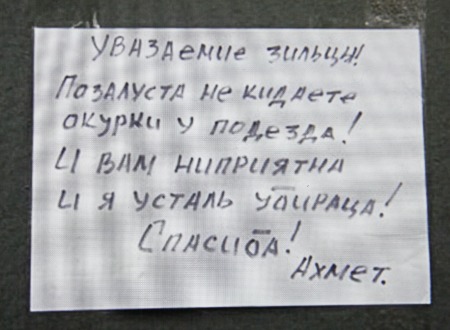 Уваздемие зильцы!
Позалуста не кидаете
окурки у подезда!
И вам ниприятна
и я усталь убираца!
Спасиба!
Ахмет.